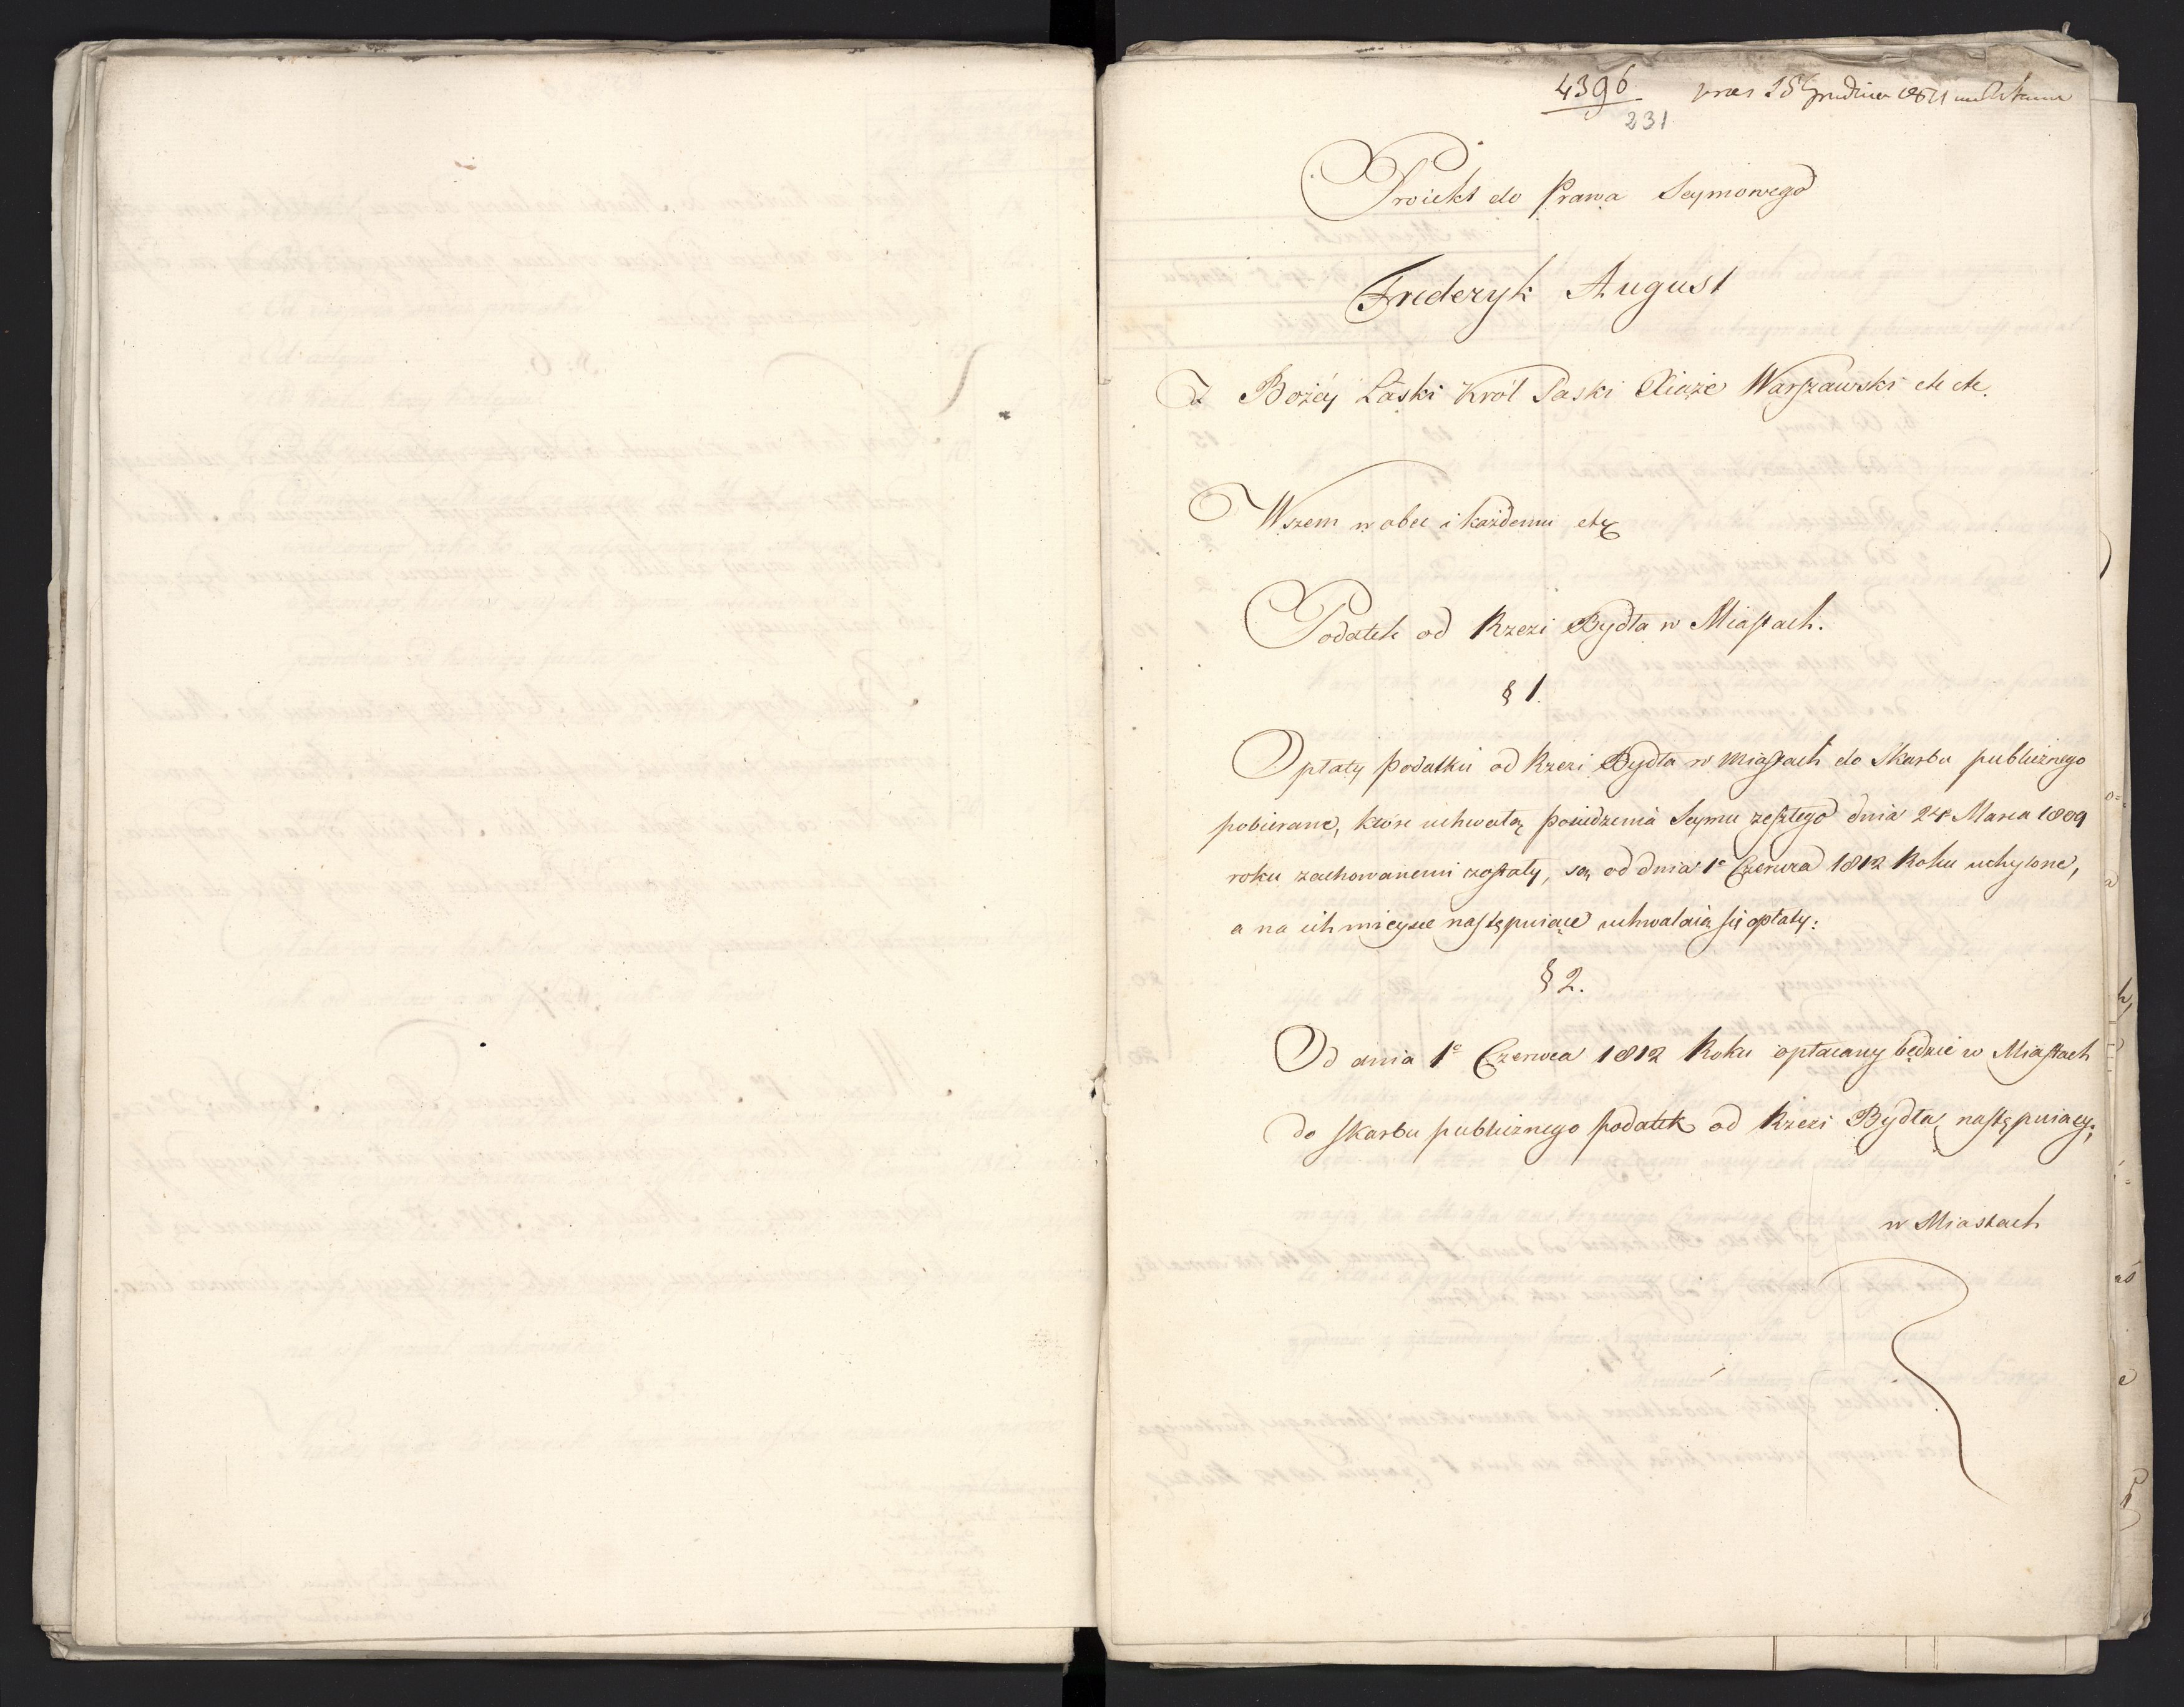 4396
231
Proiekt do Prawa Seymowego
Fryderyk August
Z Bożéy Łaski Król Saski Xiąże Warszawski etc etc.
Wszem w obec i każdemu etc
Podatek od Rzezi Bydła w Miastach.
§ 1.
Opłaty podatku od Rzezi Bydła w Miastach do Skarbu publicznego
pobierane, które uchwałą posiedzenia Seymu zeszłego dnia 24 Marca 1809
roku zachowanemi zostały, są od dnia 1º Czerwca 1812 Roku uchylone,
a na ich mieysce następuiące uchwalaią się opłaty:
§ 2.
Od dnia 1º Czerwca 1812 Roku opłacany będzie w Miastach
do Skarbu publicznego podatek od Rzezi Bydła następuiący;
w Miastach